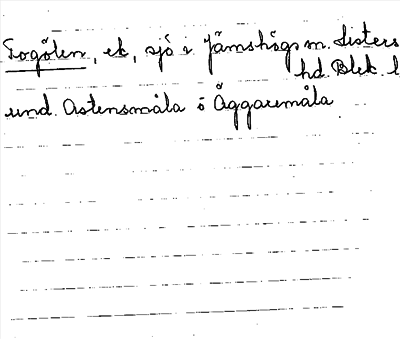 Fogölen, ek, sjö i Jämshögs sn. Listers
hd. Blek. l
und. Axtensmåla ö Äggaremåla